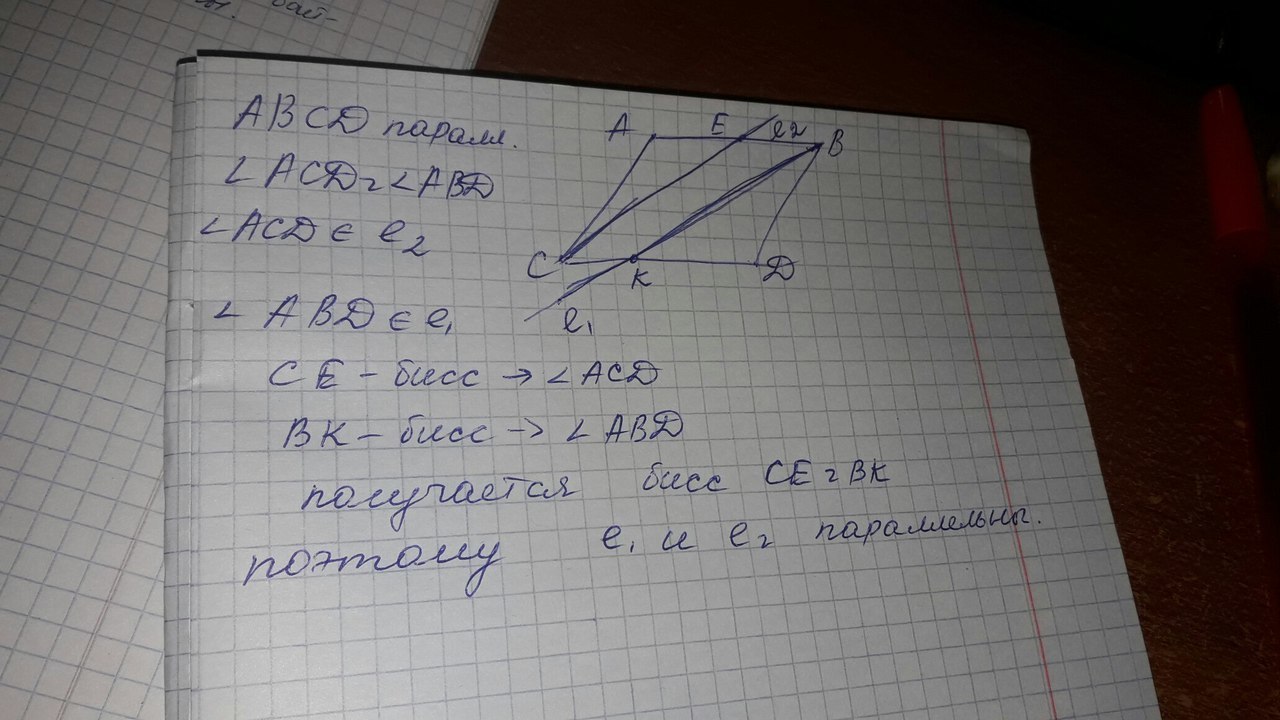 ABCD паралл.
∠ACD=∠ABD
∠ACD ∈ e₂
∠ABD ∈ e₁
CE – бисс → ∠ACD
BK – бисс → ∠ABD
получается бисс CE = BK
поэтому e₁ и e₂ параллельны.
A E e₂ B
C K D
e₁